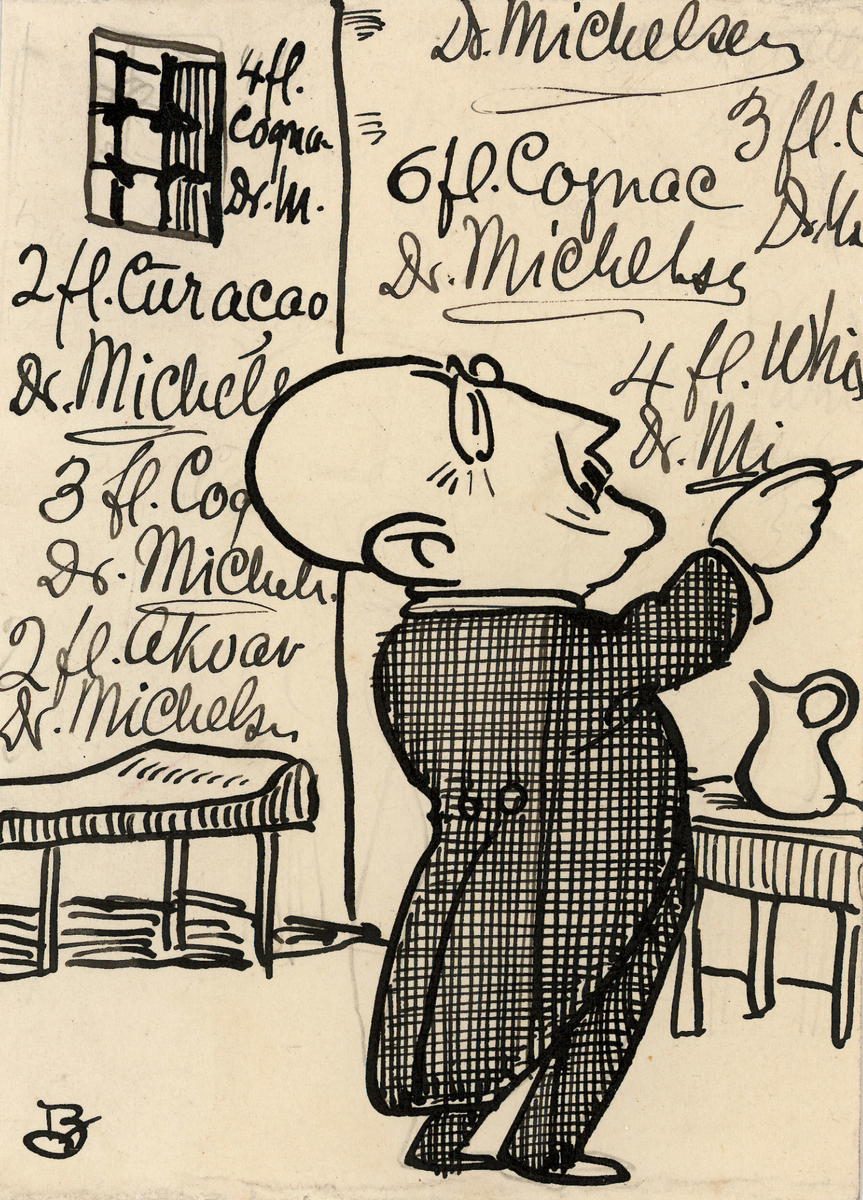 4 fl.
Cogna-
Dr. M.
2 fl. Curaçao
Dr. Michels
3 fl. Cog
Dr. Michels.
2 fl. Akvav
Dr. Michelsn
Dr. Michelsen
3 fl. C
6 fl. Cognac
Dr. Michelsen
4 fl. Whis
Dr. Mi